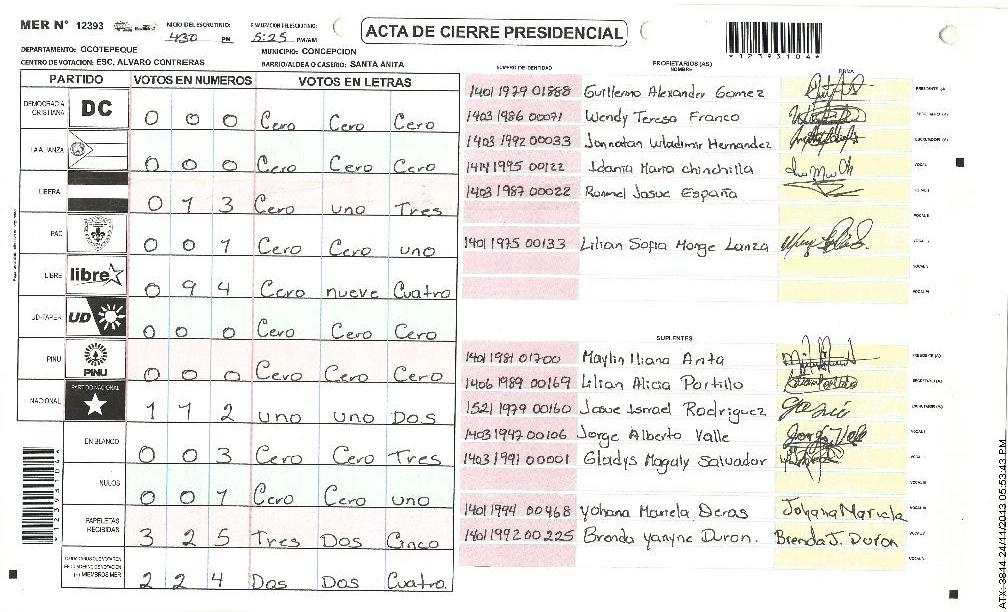 MER N° 12393
INICIO DEL ESCRUTINIO: 430 PM
FINALIZACION DEL ESCRUTINIO: 5:25 PM/AM
ACTA DE CIERRE PRESIDENCIAL
*12393104*
DEPARTAMENTO: OCOTEPEQUE
MUNICIPIO: CONCEPCION
CENTRO DE VOTACION: ESC. ALVARO CONTRERAS
BARRIO/ALDEA O CASERIO: SANTA ANITA
PARTIDO VOTOS EN NUMEROS VOTOS EN LETRAS
DEMOCRACIA CRISTIANA DC 0 0 0 Cero Cero Cero
LA ALIANZA 0 0 0 Cero Cero Cero
LIBERAL 0 1 3 Cero uno Tres
PAC 0 0 1 Cero Cero uno
LIBRE libre 0 9 4 Cero nueve Cuatro
UD-FAPER UD 0 0 0 Cero Cero Cero
PINU PINU 0 0 0 Cero Cero Cero
NACIONAL PARTIDO NACIONAL 1 1 2 uno uno Dos
EN BLANCO 0 0 3 Cero Cero Tres
NULOS 0 0 1 Cero Cero uno
PAPELETAS RECIBIDAS 3 2 5 Tres Dos Cinco
(+) MIEMBROS MER 2 2 4 Dos Dos Cuatro.
*12393104*
NUMERO DE IDENTIDAD PROPIETARIOS (AS) NOMBRE FIRMA
1401 1979 01888 Guillermo Alexander Gomez PRESIDENTE (A)
1403 1986 00071 Wendy Teresa Franco SECRETARIO (A)
1403 1992 00033 Jonnatan Wladimir Hernandez ESCRUTADOR (A)
1414 1995 00122 Idania Maria chinchilla VOCAL I
1403 1987 00022 Rommel Josue España VOCAL II
VOCAL III
1401 1975 00133 Lilian Sofia Monge Lanza
VOCAL V
VOCAL VI
SUPLENTES
1401 1981 01700 Maylin Iliana Anta PRESIDENTE (A)
1406 1989 00169 Lilian Alicia Portillo SECRETARIO (A)
1521 1979 00160 Josue Israel Rodriguez ESCRUTADOR (A)
1403 1947 00106 Jorge Alberto Valle Jorge Valle VOCAL I
1403 1991 00001 Gladys Magaly Salvador
VOCAL III
1401 1994 00468 Yohana Mariela Deras Johana Mariela
1401 1992 00225 Brenda Yanyne Duron. Brenda J. Duron VOCAL V
VOCAL VI
ATX-3844-24/11/2013 05:53:43 PM